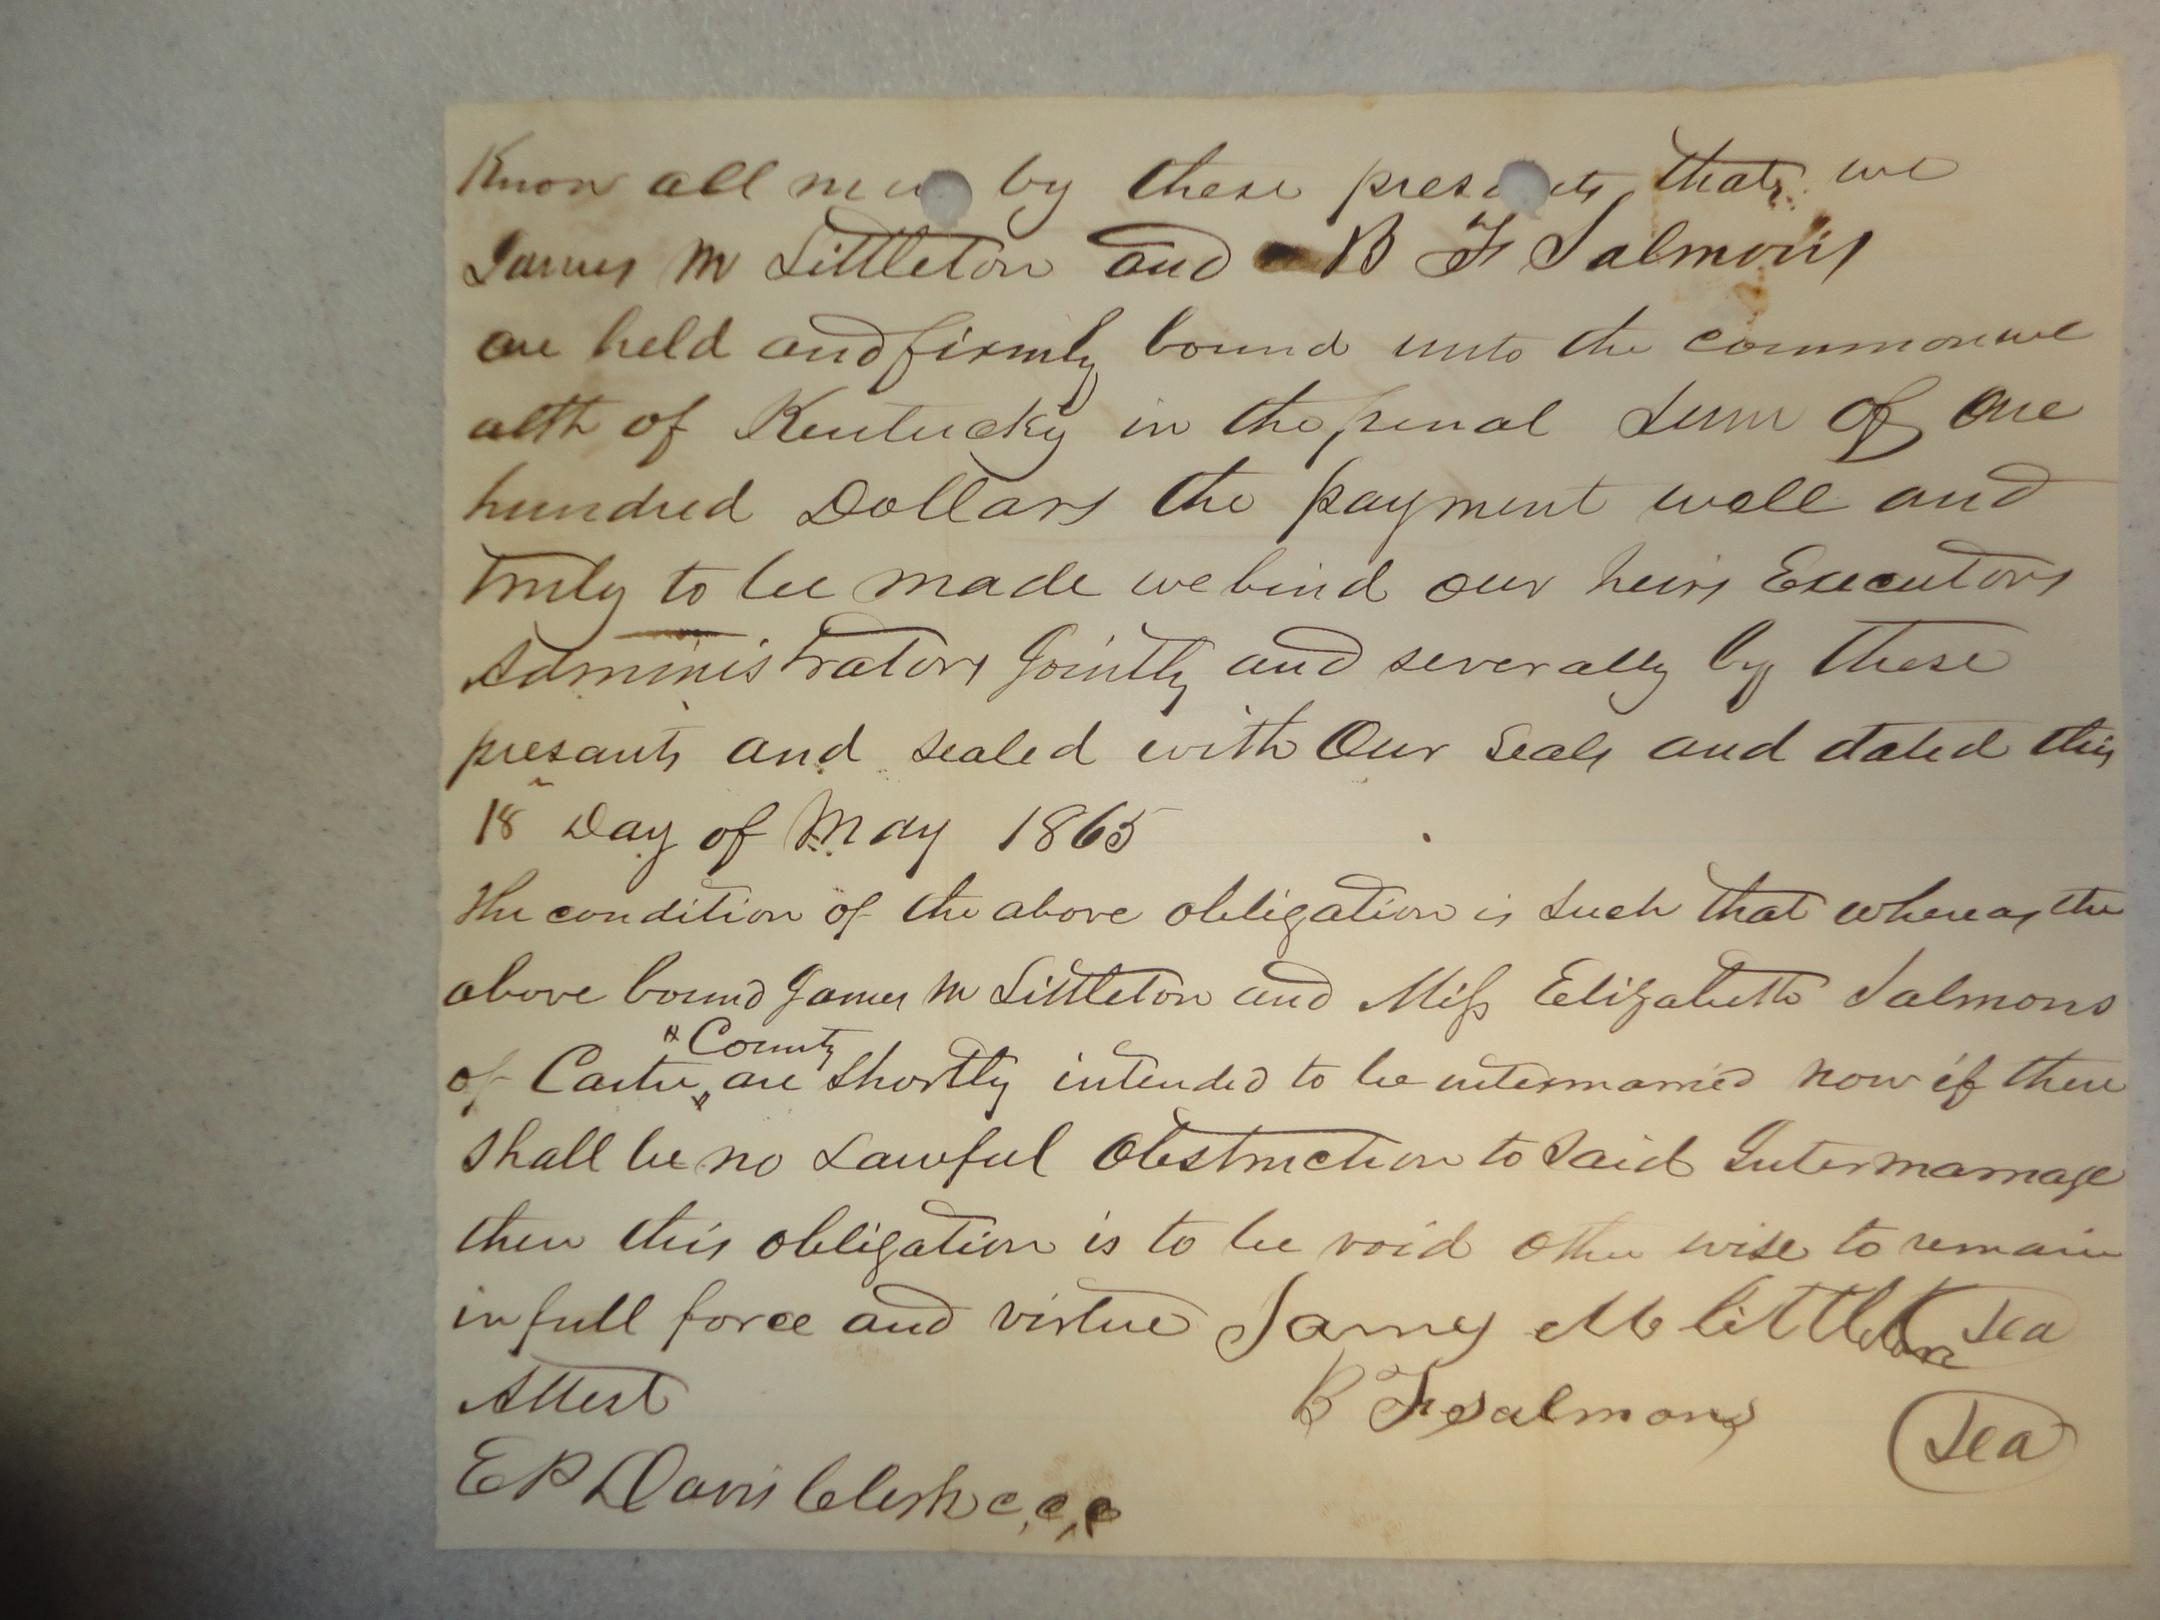 Know all men by these presents that we
James M Littleton and B F Salmons
are held and firmly bound unto the commonwe
alth of Kentucky in the penal sum of One
hundred Dollars the payment well and
truly to be made we bind our heirs Executors
Administrators Jointly and severally by these
presants and sealed with Our seals and dated this
18 Day of May 1865
The condition of the above obligation is such that whereas the
above bound James M Littleton and Miss Elizabeth Salmons
County
of Carter are Shortly intended to be intermarried now if there
Shall be no Lawful Obstruction to Said Intermarriage
then this obligation is to be void other wise to remain
in full force and virtue James M littleton Sea
Attest B F Salmons Sea
E P Davis Clerk c,c,c